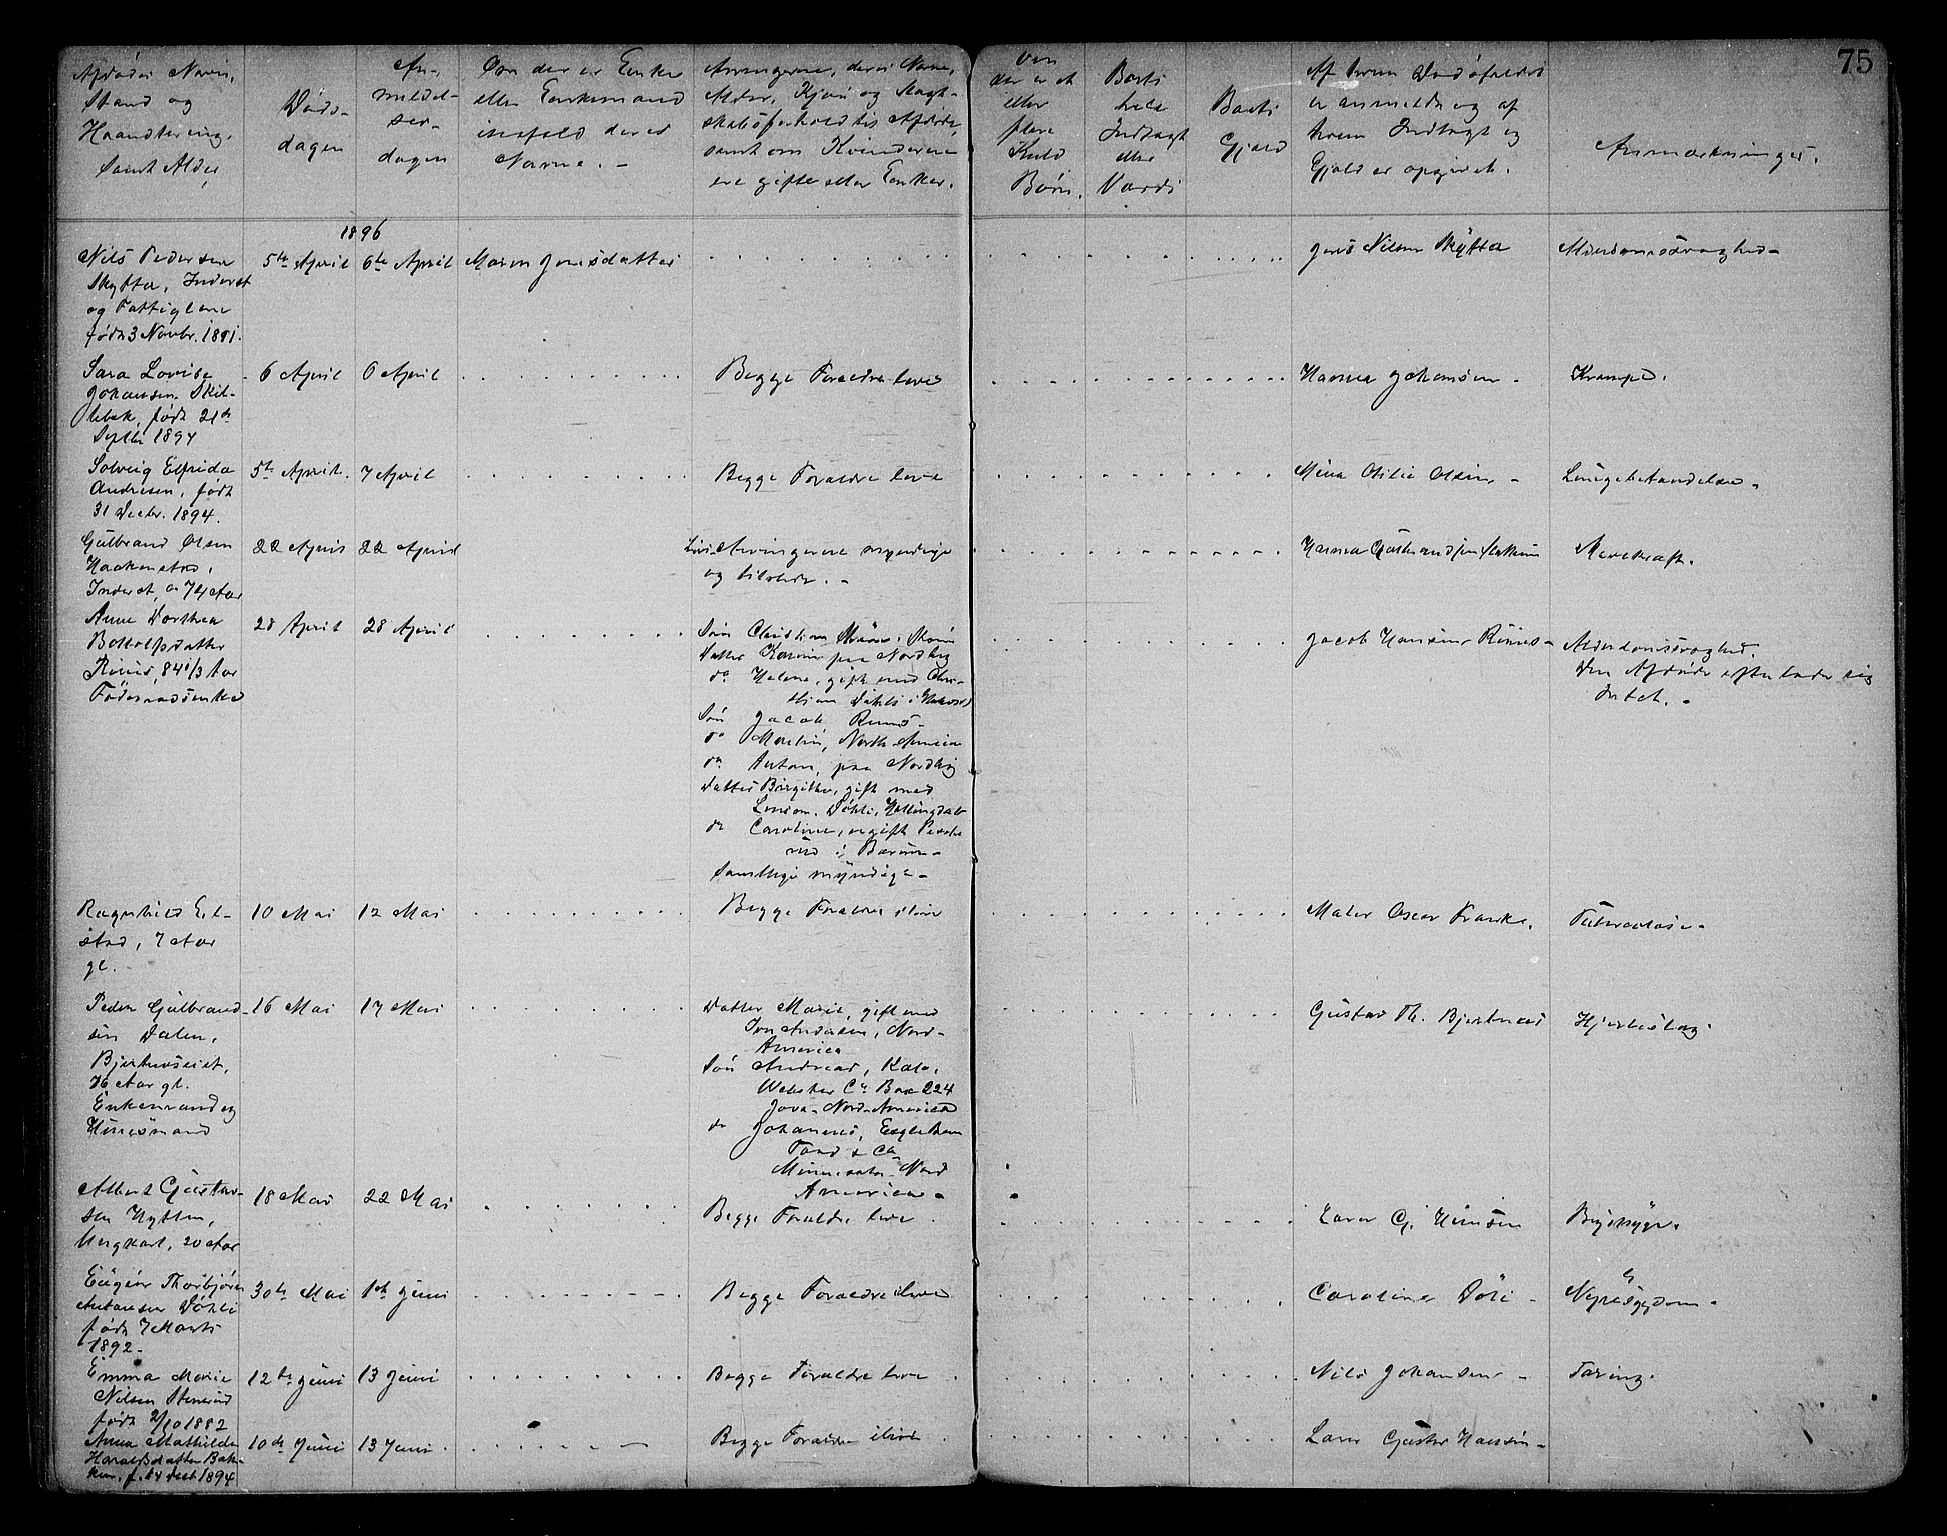 75
Afdødes Navn,
Stand og
Haandtering,
Samt Alder
Døds-
dagen
An-
meldel-
ses-
dagen
Om der er Enke
eller Enkemand
isaafald deres
Navne. -
Arvingerne, deres Navne,
Alder, Kjøn og Slægt-
skabsforhold til Afdøde,
samt om Kvinderne
ere gifte eller Enker.
Om
der er et
eller
flere
Kuld
Børn.
Boets
hele
Indtægt
eller
Værdi
Boets
Gjæld
Af hvem Dødsfaldet
er anmeldt og af
hvem Indtægt og
Gjæld er opgivet.
Anmærkninger.
1896
Nils Pedersen
Skytta, Inderst
og Fattiglem
født 3 Novbr. 1891.
5te April
6te April
Maren Jensdatter
Jens Nilsen Skytta
Alderdomssvaghed -
Sara Lovise
Johansen Skil-
lebek, født 21de
Septbr 1894
6 April
6 April
Begge Forældre leve
Hanna Johansen -
Krampe.
Solveig Elfrida
Andresen, født
31 Decbr. 1894.
5te April.
7 April
Begge Forældre leve
Mina Otilie Olsen -
Lungebetændelse -
Gulbrand Olsen
Haakenstad,
Inderst, 74 Aar
22 April
22 April
Livsarvingerne myndige
og tilstede. -
Hanna
Marekraft.
Anne Dorthea
Bottolfsdatter
Ruud, 84 1/3 Aar
Føderaadsenke
28 April
28 April
Søn Christian
Datter Karen paa Nordby
do Helene, gift med Chri-
stian Døhli i
Søn Jacob Ruud -
do Martin, North America
do Anton, paa Nordby
Datter Birgitte, gift med
Døhli, Hallingdal
do Caroline, ugift
i Bærum -
Samtlige myndige -
Jacob Hansen Ruud -
Alderdomssvaghed.
Den Afdøde efterlader sig
Intet. -
Ragnhild Eil-
stad, 7 Aar
gl.
10 Mai
12 Mai
Begge Forældre ilive
Maler Oscar Franke.
Tuberculose -
Peder Gulbrand-
sen Dalen,
Bjertnæseiet,
76 Aar gl.
Enkemand og
Huusmand
16 Mai
17 Mai
Datter Marie, gift med
Andersen, Nord-
America
Søn Andreas, Kalo,
Webster Co Box 224
Jova - Nord-America
do Johannes,
Minnesota - Nord
America -
Gustav Th. Bjertnæs
Hjerteslag.
Albert Gustav-
sen Hytten,
Ungkarl, 20 Aar
18 Mai
22 Mai
Begge Forældre leve
Laura G. Hansen
Brystsyge.
Eugen Thorbjørn
Antonsen Døhli
født 7 Marts
1892 -
30te Mai
1ste Juni
Begge Forældre ilive
Caroline Døli -
Nyresygdom -
Emma Marie
Nilsen Stensrud
født 2/10 1882
12te Juni
13 Juni
Begge Forældre leve
Nils Johansen -
Tæring.
Anna Mathilde
Haraldsdatter Bak-
ken. f. 14 Decbr 1894
10de Juni
13 Juni
Begge Forældre ilive
Lars Gustav Hansen -